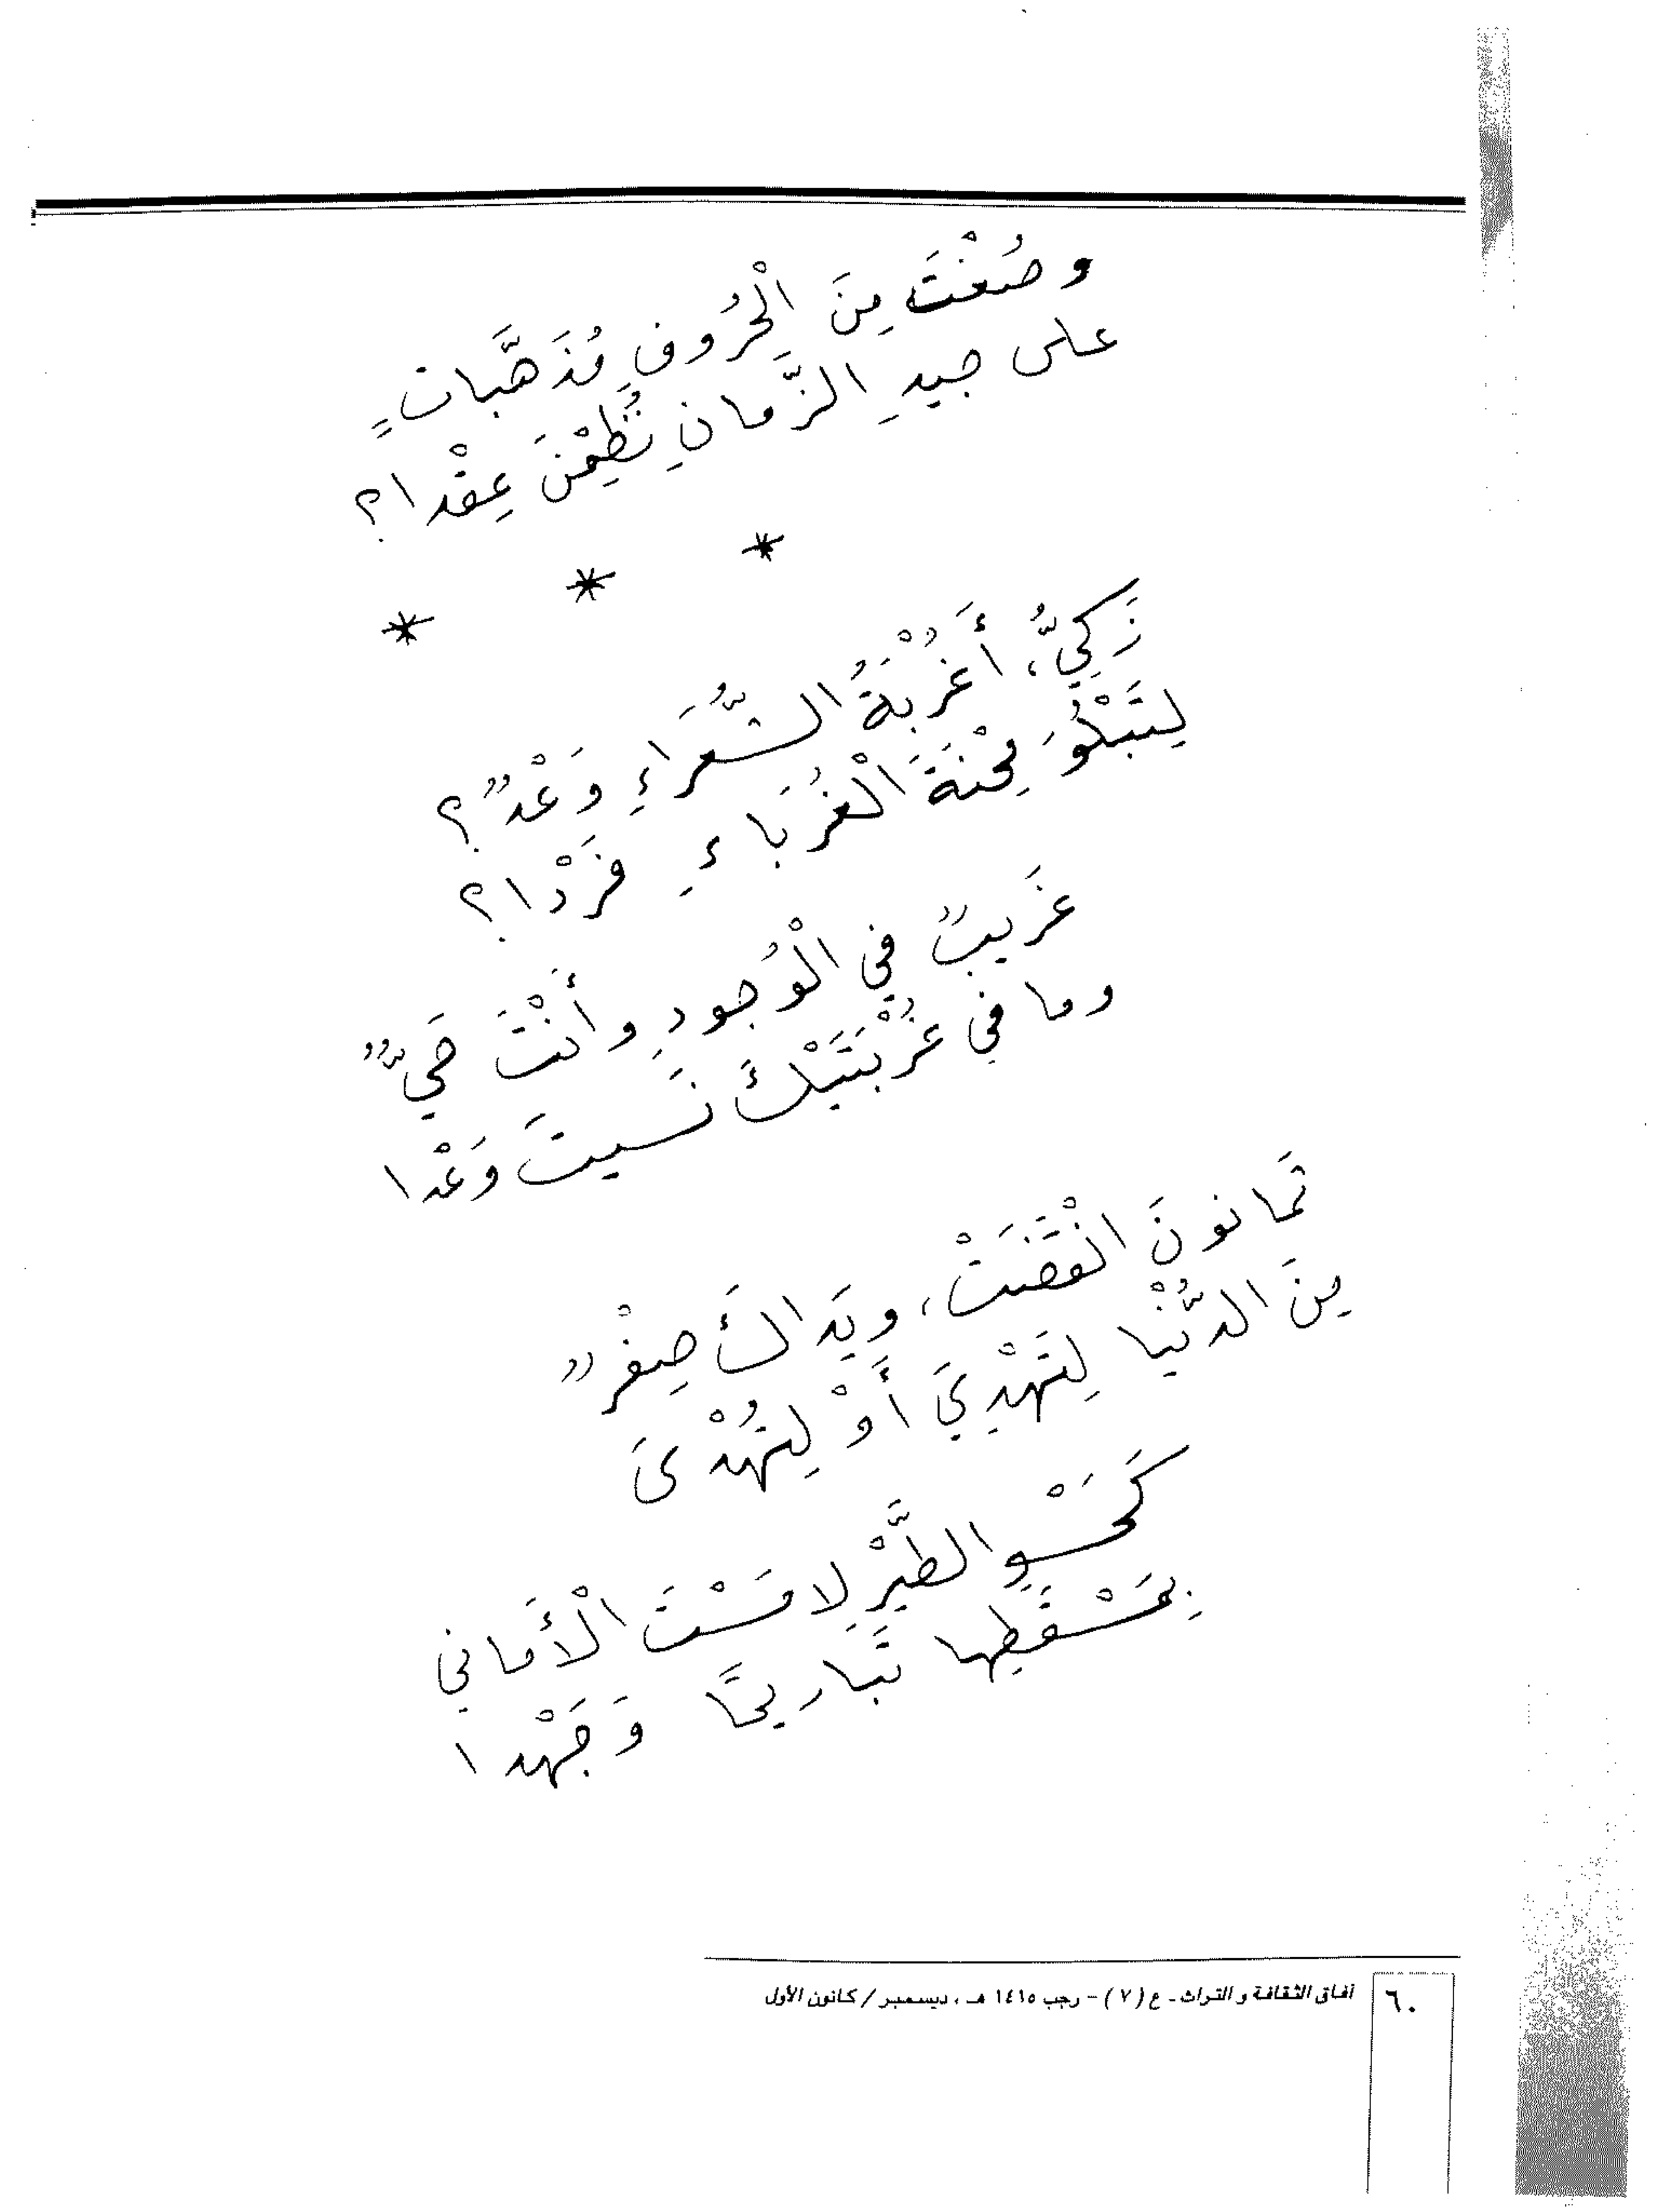 وصُغْتَ مِنَ الْحُرُوفِ مُذَهَّباتٍ
على جيدِ الزَّمانِ نُظِمْنَ عِقْدا؟
* * *
زَكِيُّ، أَغُرْبَةُ الشُّعَراءِ وَعْدٌ؟
لِتَبْلُوَ مِحْنَةَ الْغُرَباءِ فَرْدا؟
غَريبٌ في الْوُجودِ وأَنْتَ حَيٌّ
وما في غُرْبَتَيْكَ نَسيتَ وَعْدا
ثَمانونَ انْقَضَتْ، ويَداكَ صِفْرٌ
مِنَ الدُّنْيا لِتَهْدِيَ أَوْ لِتُهْدَى
كَحَسْوِ الطَّيْرِ لامَسْتَ الْأَماني
بِمَسْقَطِها تَباريحًا وَجَهْدا
٦٠ آفاق الثقافة و التراث ـ ع (٧) – رجب ١٤١٥ هـ ، ديسمبر / كانون الأول